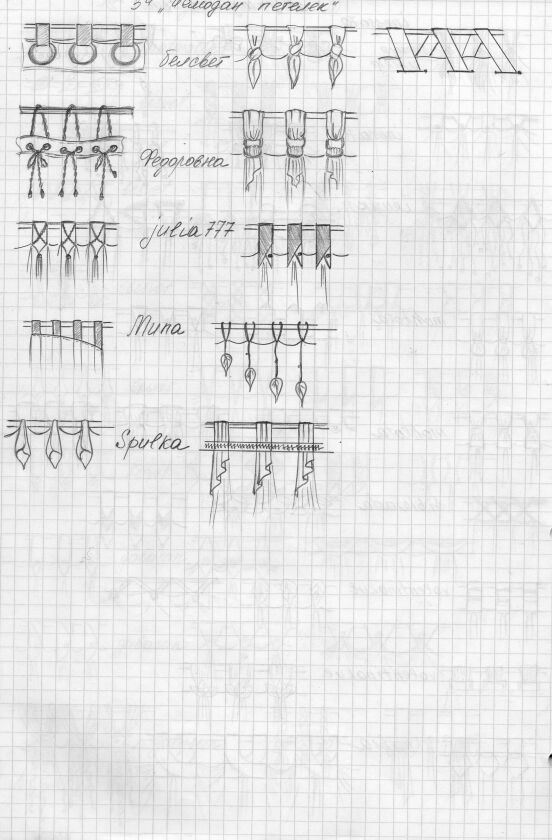 „Чемодан петелек"
белсвет
Федоровна
julia 777
Мипа
Spulka